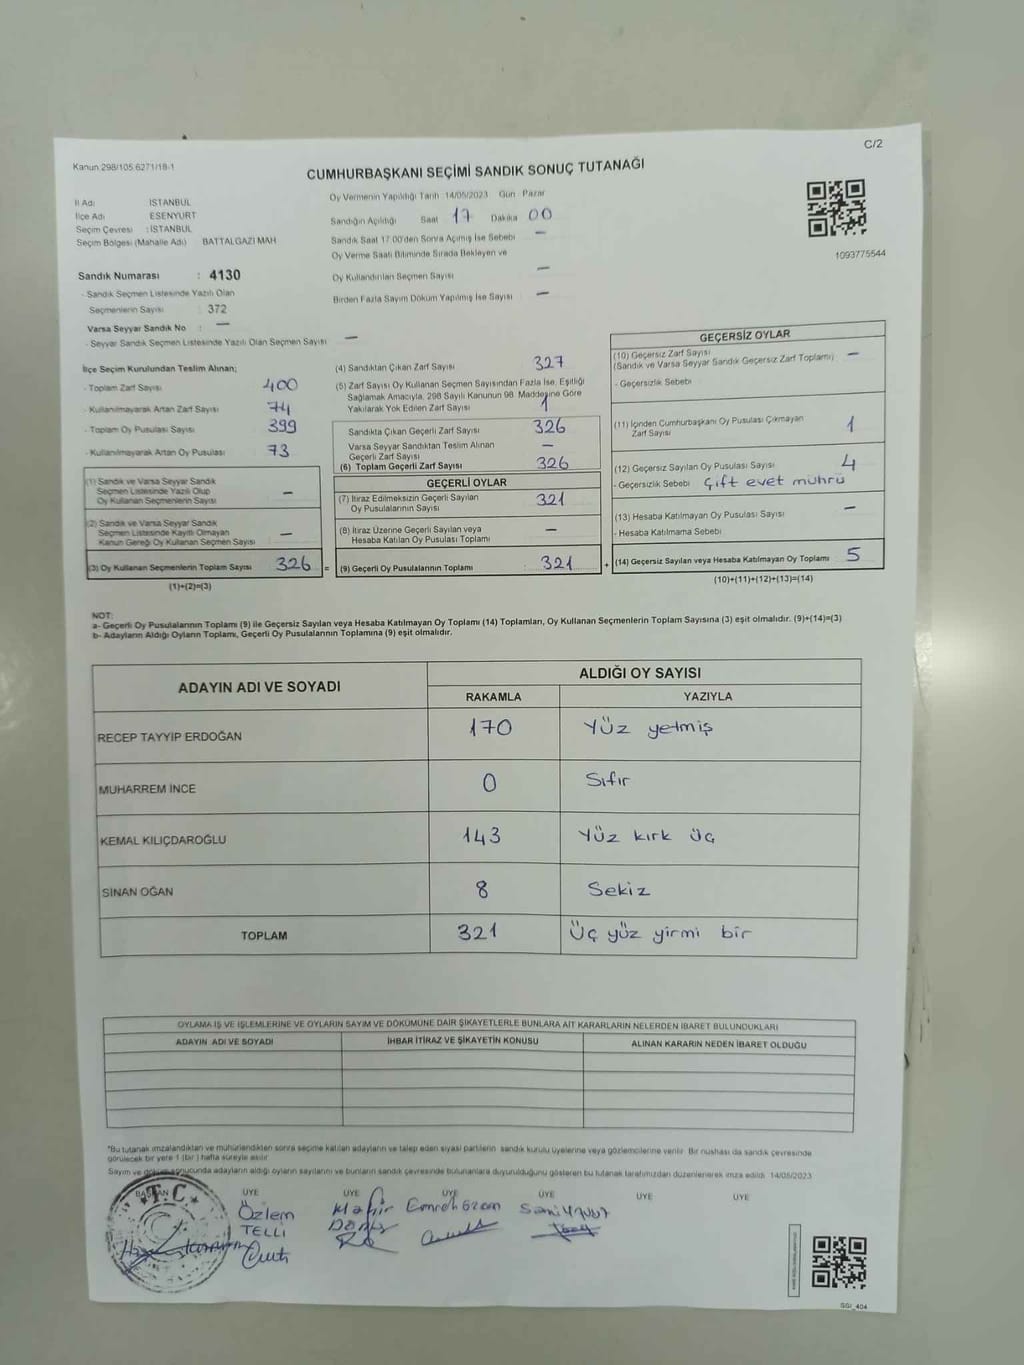 Kanun 298/105 6271/18-1
C/2
CUMHURBAŞKANI SEÇİMİ SANDIK SONUÇ TUTANAĞI
İl Adı : İSTANBUL
İlçe Adı ESENYURT
Seçim Çevresi : İSTANBUL
Seçim Bölgesi (Mahalle Adı) BATTALGAZİ MAH
Oy Vermenin Yapıldığı Tarih 14/05/2023 Gün Pazar
Sandığın Açıldığı Saat 17 Dakika 00
Sandık Saat 17.00'den Sonra Açılmış İse Sebebi —
Oy Verme Saati Bitiminde Sırada Bekleyen ve
Oy Kullandırılan Seçmen Sayısı —
Birden Fazla Sayım Döküm Yapılmış İse Sayısı —
1093775544
Sandık Numarası : 4130
- Sandık Seçmen Listesinde Yazılı Olan
Seçmenlerin Sayısı : 372
Varsa Seyyar Sandık No : —
- Seyyar Sandık Seçmen Listesinde Yazılı Olan Seçmen Sayısı —
İlçe Seçim Kurulundan Teslim Alınan;
- Toplam Zarf Sayısı 400
- Kullanılmayarak Artan Zarf Sayısı 74
- Toplam Oy Pusulası Sayısı 399
- Kullanılmayarak Artan Oy Pusulası 73
(1) Sandık ve Varsa Seyyar Sandık
Seçmen Listesinde Yazılı Olup
Oy Kullanan Seçmenlerin Sayısı —
(2) Sandık ve Varsa Seyyar Sandık
Seçmen Listesinde Kayıtlı Olmayan
Kanun Gereği Oy Kullanan Seçmen Sayısı —
(3) Oy Kullanan Seçmenlerin Toplam Sayısı 326 =
(1)+(2)=(3)
(4) Sandıktan Çıkan Zarf Sayısı 327
(5) Zarf Sayısı Oy Kullanan Seçmen Sayısından Fazla İse, Eşitliği
Sağlamak Amacıyla, 298 Sayılı Kanunun 98. Maddesine Göre
Yakılarak Yok Edilen Zarf Sayısı 1
Sandıkta Çıkan Geçerli Zarf Sayısı 326
Varsa Seyyar Sandıktan Teslim Alınan
Geçerli Zarf Sayısı —
(6) Toplam Geçerli Zarf Sayısı 326
GEÇERLİ OYLAR
(7) İtiraz Edilmeksizin Geçerli Sayılan
Oy Pusulalarının Sayısı 321
(8) İtiraz Üzerine Geçerli Sayılan veya
Hesaba Katılan Oy Pusulası Toplamı —
(9) Geçerli Oy Pusulalarının Toplamı : 321 +
GEÇERSİZ OYLAR
(10) Geçersiz Zarf Sayısı
(Sandık ve Varsa Seyyar Sandık Geçersiz Zarf Toplamı) —
- Geçersizlik Sebebi
(11) İçinden Cumhurbaşkanı Oy Pusulası Çıkmayan
Zarf Sayısı 1
(12) Geçersiz Sayılan Oy Pusulası Sayısı 4
- Geçersizlik Sebebi Çift evet mührü
(13) Hesaba Katılmayan Oy Pusulası Sayısı —
- Hesaba Katılmama Sebebi
(14) Geçersiz Sayılan veya Hesaba Katılmayan Oy Toplamı 5
(10)+(11)+(12)+(13)=(14)
NOT:
a- Geçerli Oy Pusulalarının Toplamı (9) ile Geçersiz Sayılan veya Hesaba Katılmayan Oy Toplamı (14) Toplamları, Oy Kullanan Seçmenlerin Toplam Sayısına (3) eşit olmalıdır. (9)+(14)=(3)
b- Adayların Aldığı Oyların Toplamı, Geçerli Oy Pusulalarının Toplamına (9) eşit olmalıdır.
ADAYIN ADI VE SOYADI
ALDIĞI OY SAYISI
RAKAMLA YAZIYLA
RECEP TAYYİP ERDOĞAN 170 Yüz yetmiş
MUHARREM İNCE 0 Sıfır
KEMAL KILIÇDAROĞLU 143 Yüz kırk üç
SİNAN OĞAN 8 Sekiz
TOPLAM 321 Üç yüz yirmi bir
OYLAMA İŞ VE İŞLEMLERİNE VE OYLARIN SAYIM VE DÖKÜMÜNE DAİR ŞİKAYETLERLE BUNLARA AİT KARARLARIN NELERDEN İBARET BULUNDUKLARI
ADAYIN ADI VE SOYADI İHBAR İTİRAZ VE ŞİKAYETİN KONUSU ALINAN KARARIN NEDEN İBARET OLDUĞU
*Bu tutanak imzalandıktan ve mühürlendikten sonra seçime katılan adayların ve talep eden siyasi partilerin sandık kurulu üyelerine veya gözlemcilerine verilir. Bir nüshası da sandık çevresinde
görülecek bir yere 1 (bir) hafta süreyle asılır
Sayım ve döküm sonucunda adayların aldığı oyların sayılarını ve bunların sandık çevresinde bulunanlara duyurulduğunu gösteren bu tutanak tarafımızdan düzenlenerek imza edildi. 14/05/2023
BAŞKAN ÜYE ÜYE ÜYE ÜYE ÜYE ÜYE
T.C.
Özlem
TELLİ
Mahir
Emrah Özcan
SGİ_404